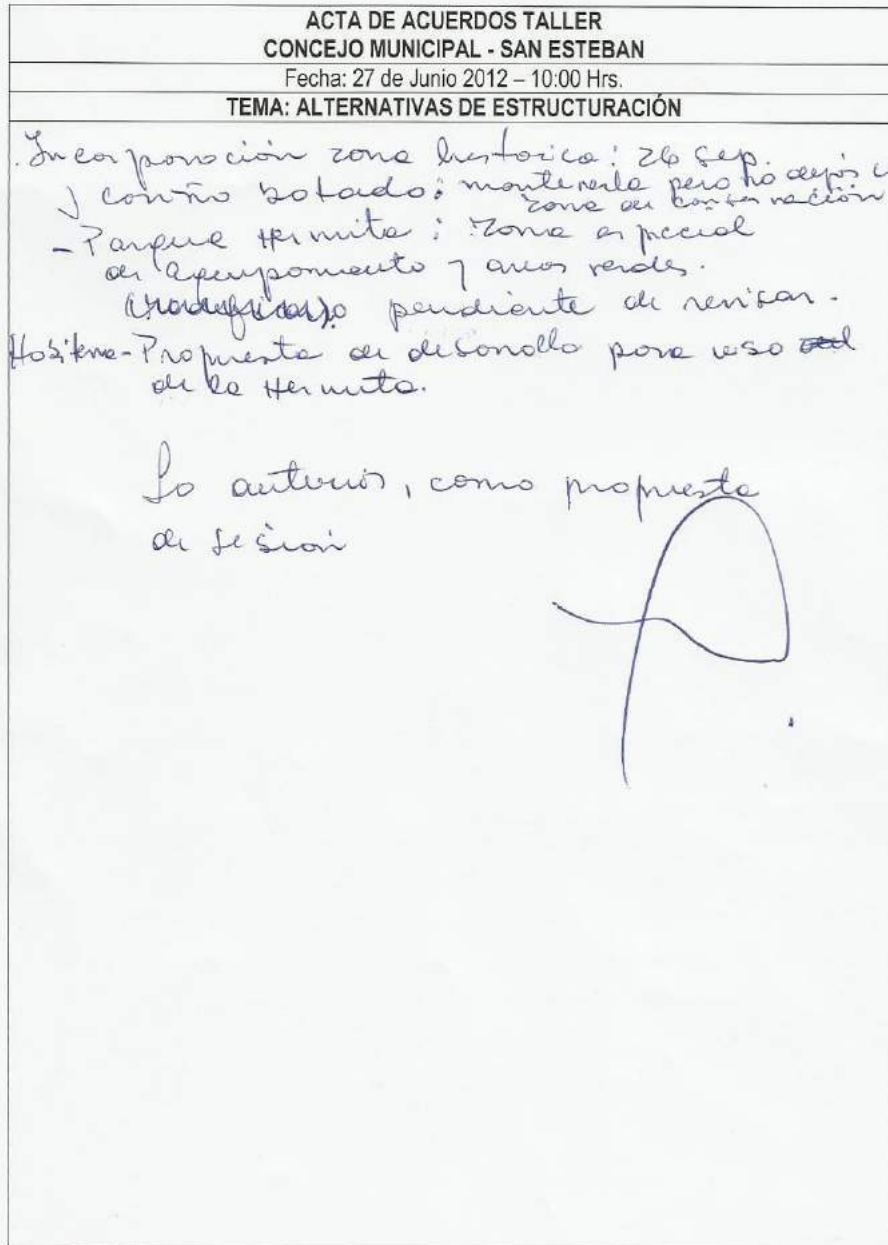 ACTA DE ACUERDOS TALLER
CONCEJO MUNICIPAL - SAN ESTEBAN
Fecha: 27 de Junio 2012 – 10:00 Hrs.
TEMA: ALTERNATIVAS DE ESTRUCTURACIÓN
. Incorporación zona historica: 26 sep.
botado: mantenerla pero no
zona de conservación
- Parque Hermita: zona especial
de equipamiento y areas verdes.
pendiente de revisar.
- Propuesta de desarrollo para uso
de la Hermita.
Lo anterior, como propuesta
de sesión